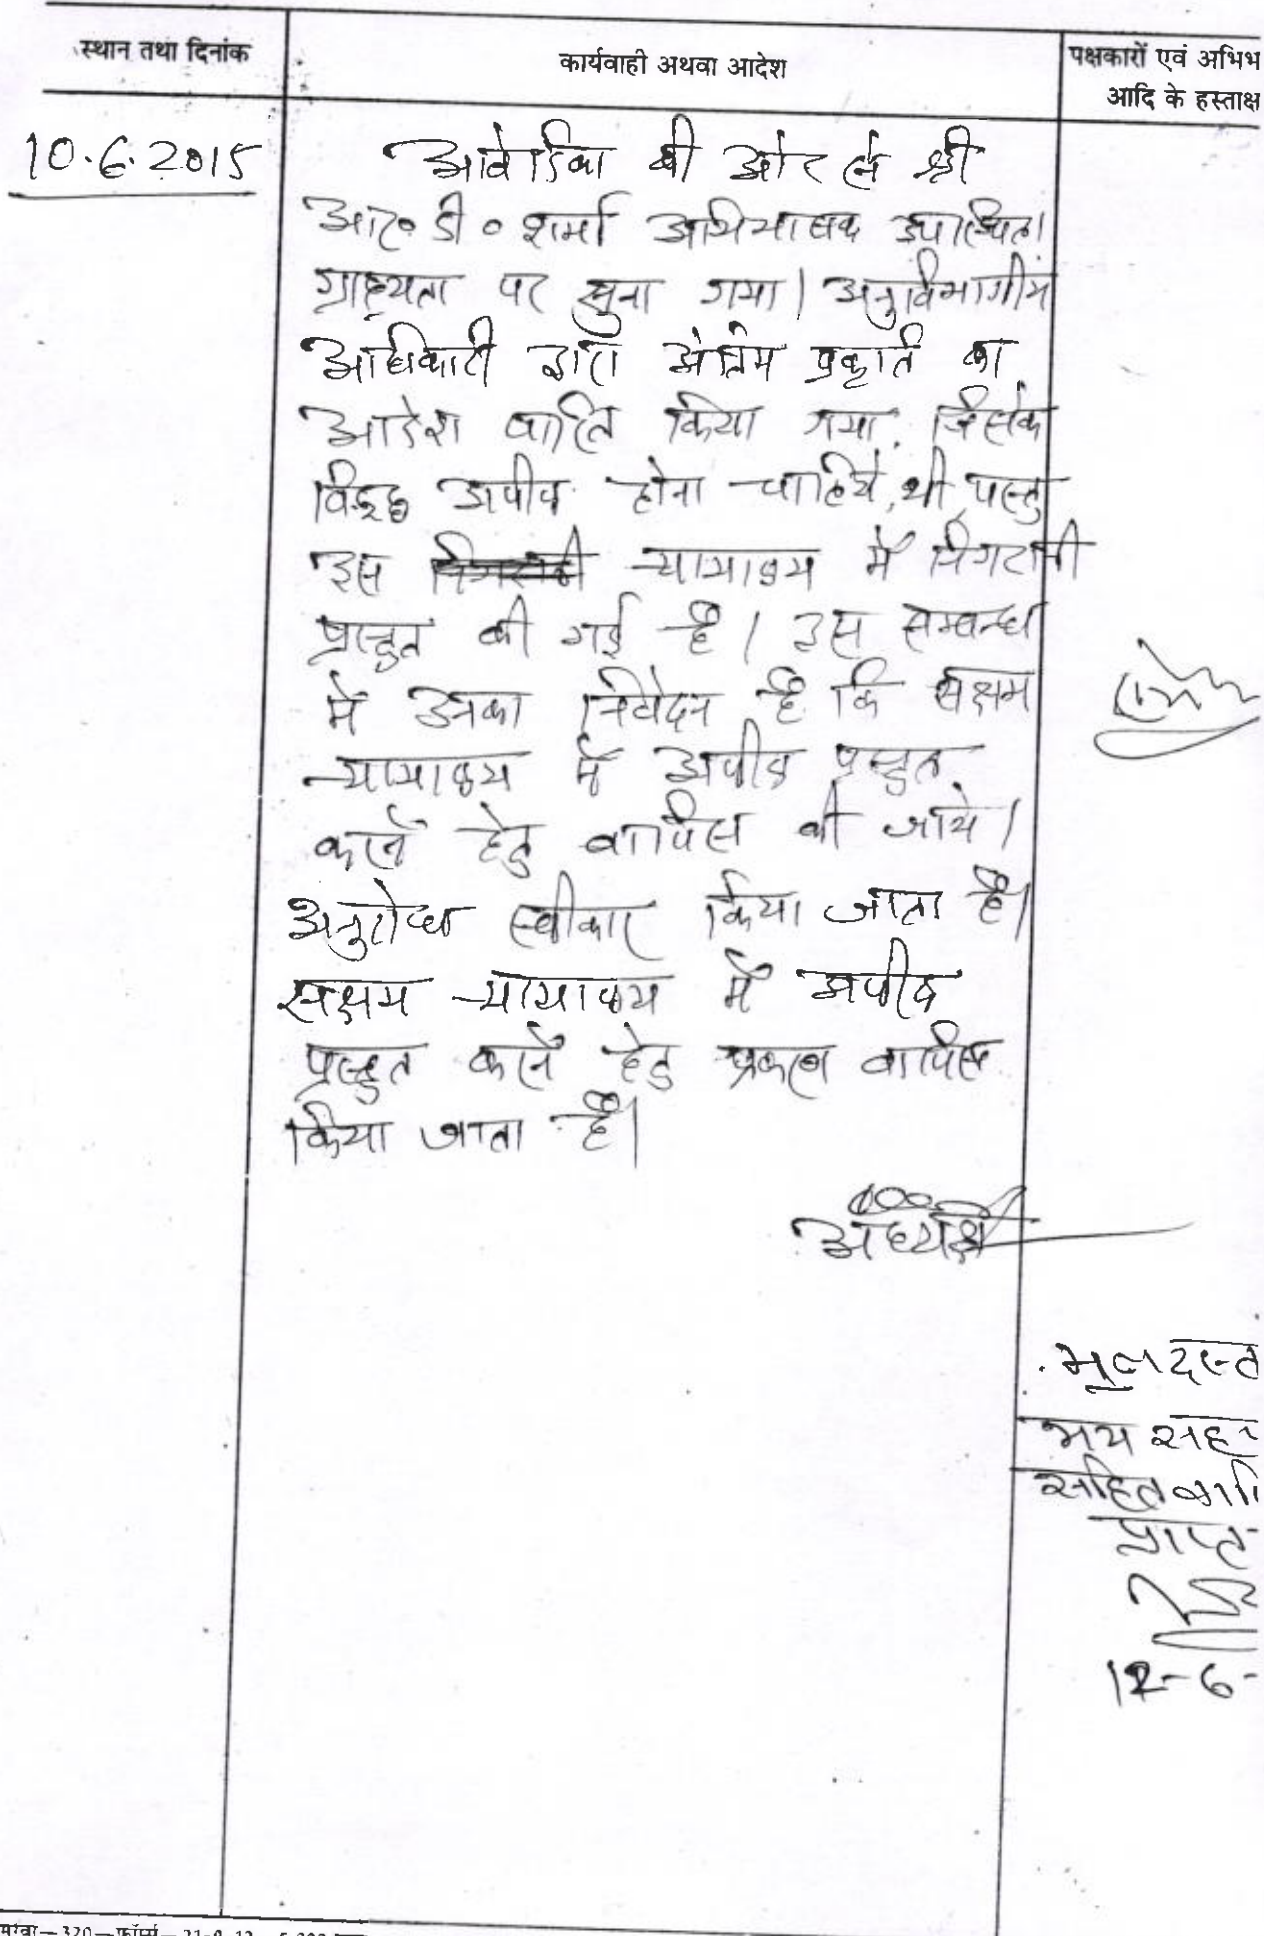 स्थान तथा दिनांक
कार्यवाही अथवा आदेश
पक्षकारों एवं अभिभ
आदि के हस्ताक्ष
10.6.2015
आवेदिका की ओर से श्री
आर० डी० शर्मा अभिभाषक उपस्थित।
ग्राह्यता पर सुना गया। अनुविभागीय
अधिकारी द्वारा अंतिम प्रकृति का
आदेश पारित किया गया, जिसके
विरूद्ध अपील होना चाहिये थी परन्तु
इस न्यायालय में निगरानी
प्रस्तुत की गई है। इस सम्बन्ध
में उनका निवेदन है कि सक्षम
न्यायालय में अपील प्रस्तुत
करने हेतु वापिस की जाये।
अनुरोध स्वीकार किया जाता है।
सक्षम न्यायालय में अपील
प्रस्तुत करने हेतु प्रकरण वापिस
किया जाता है।
अध्यक्ष
मूल दस्त
मय सह
सहित वापि
प्राप्त
12-6-